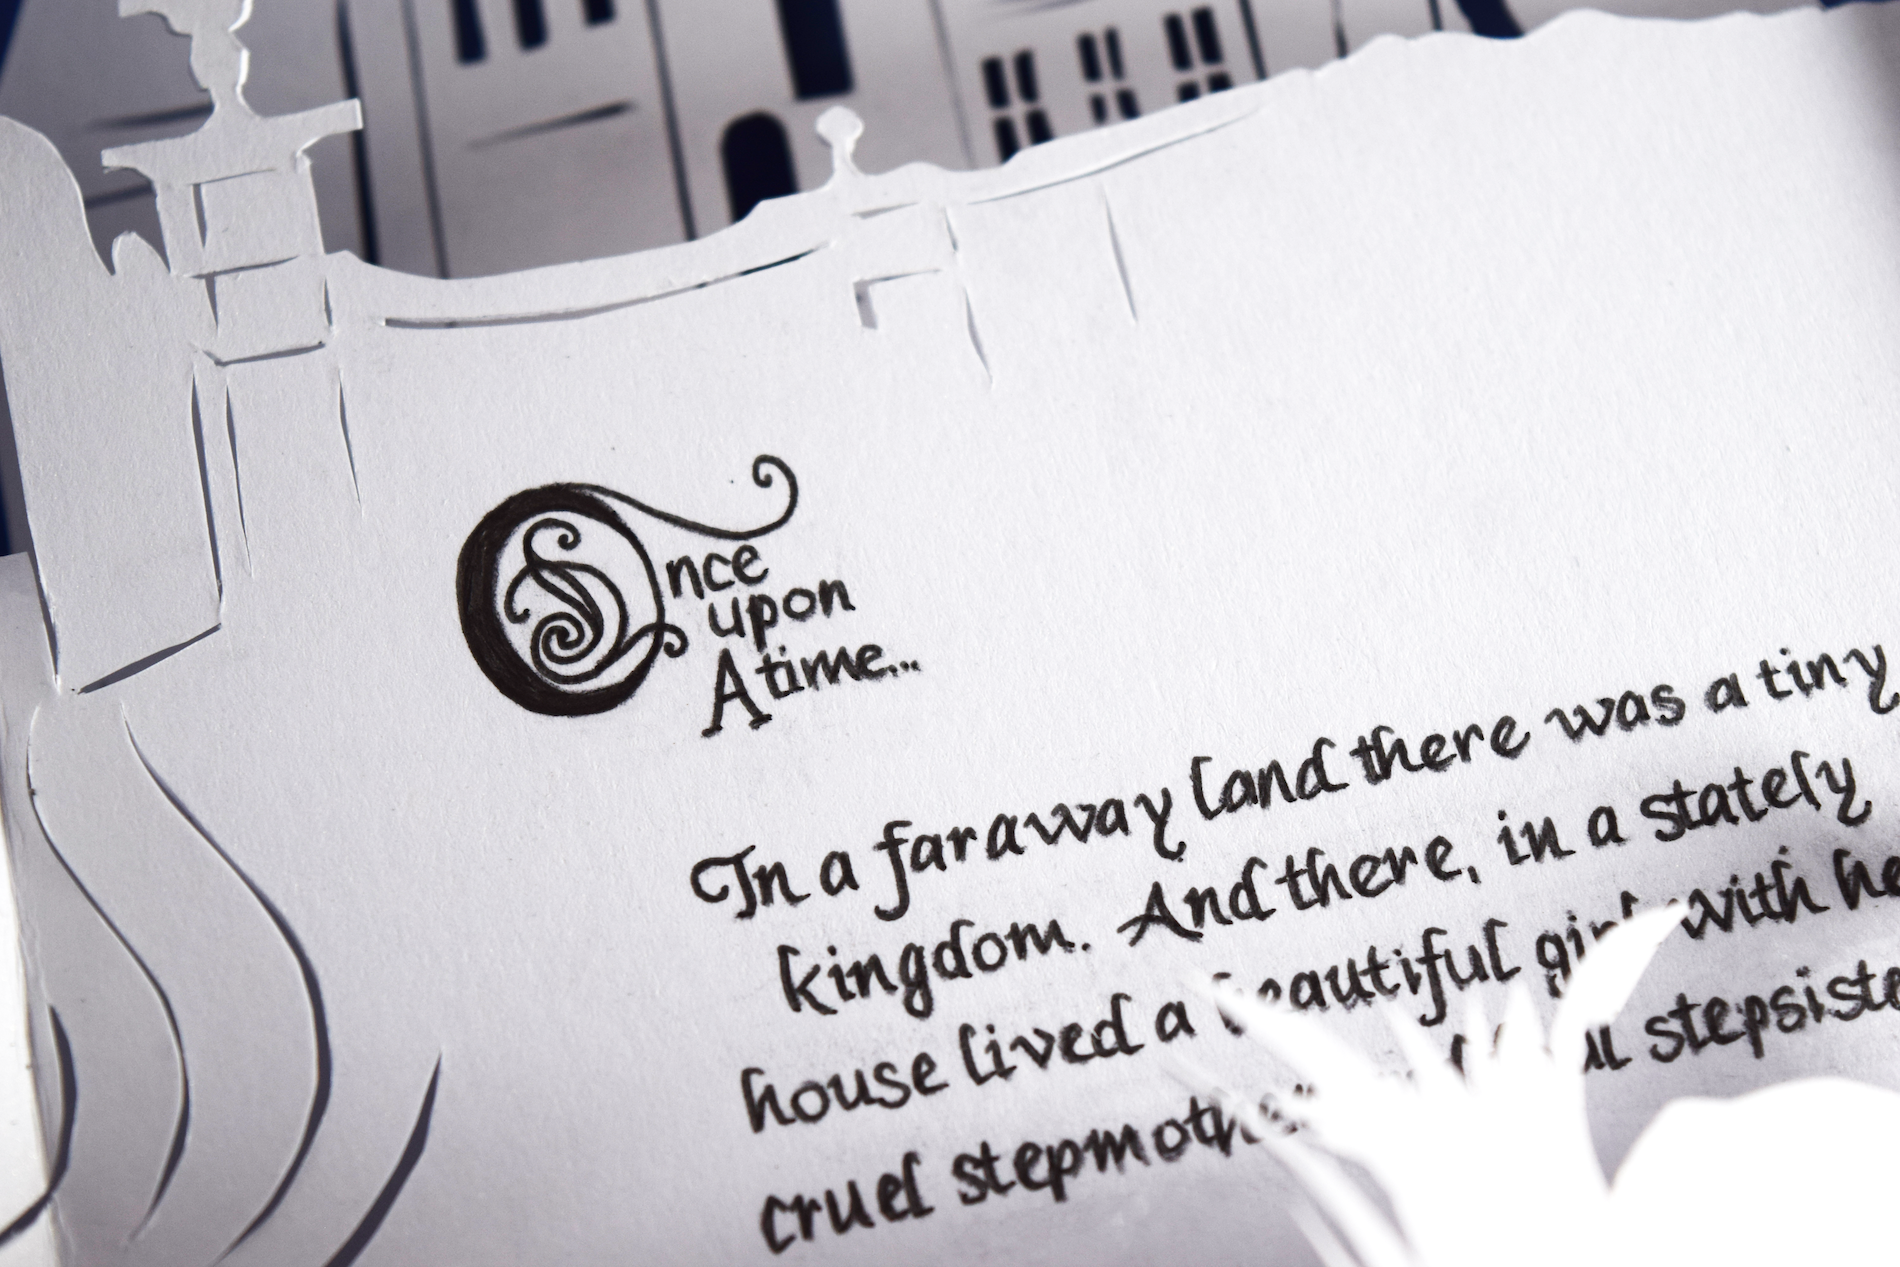 Once
upon
A time...
In a faraway land there was a tiny
kingdom. And there, in a stately
house lived a beautiful girl with
cruel stepmother